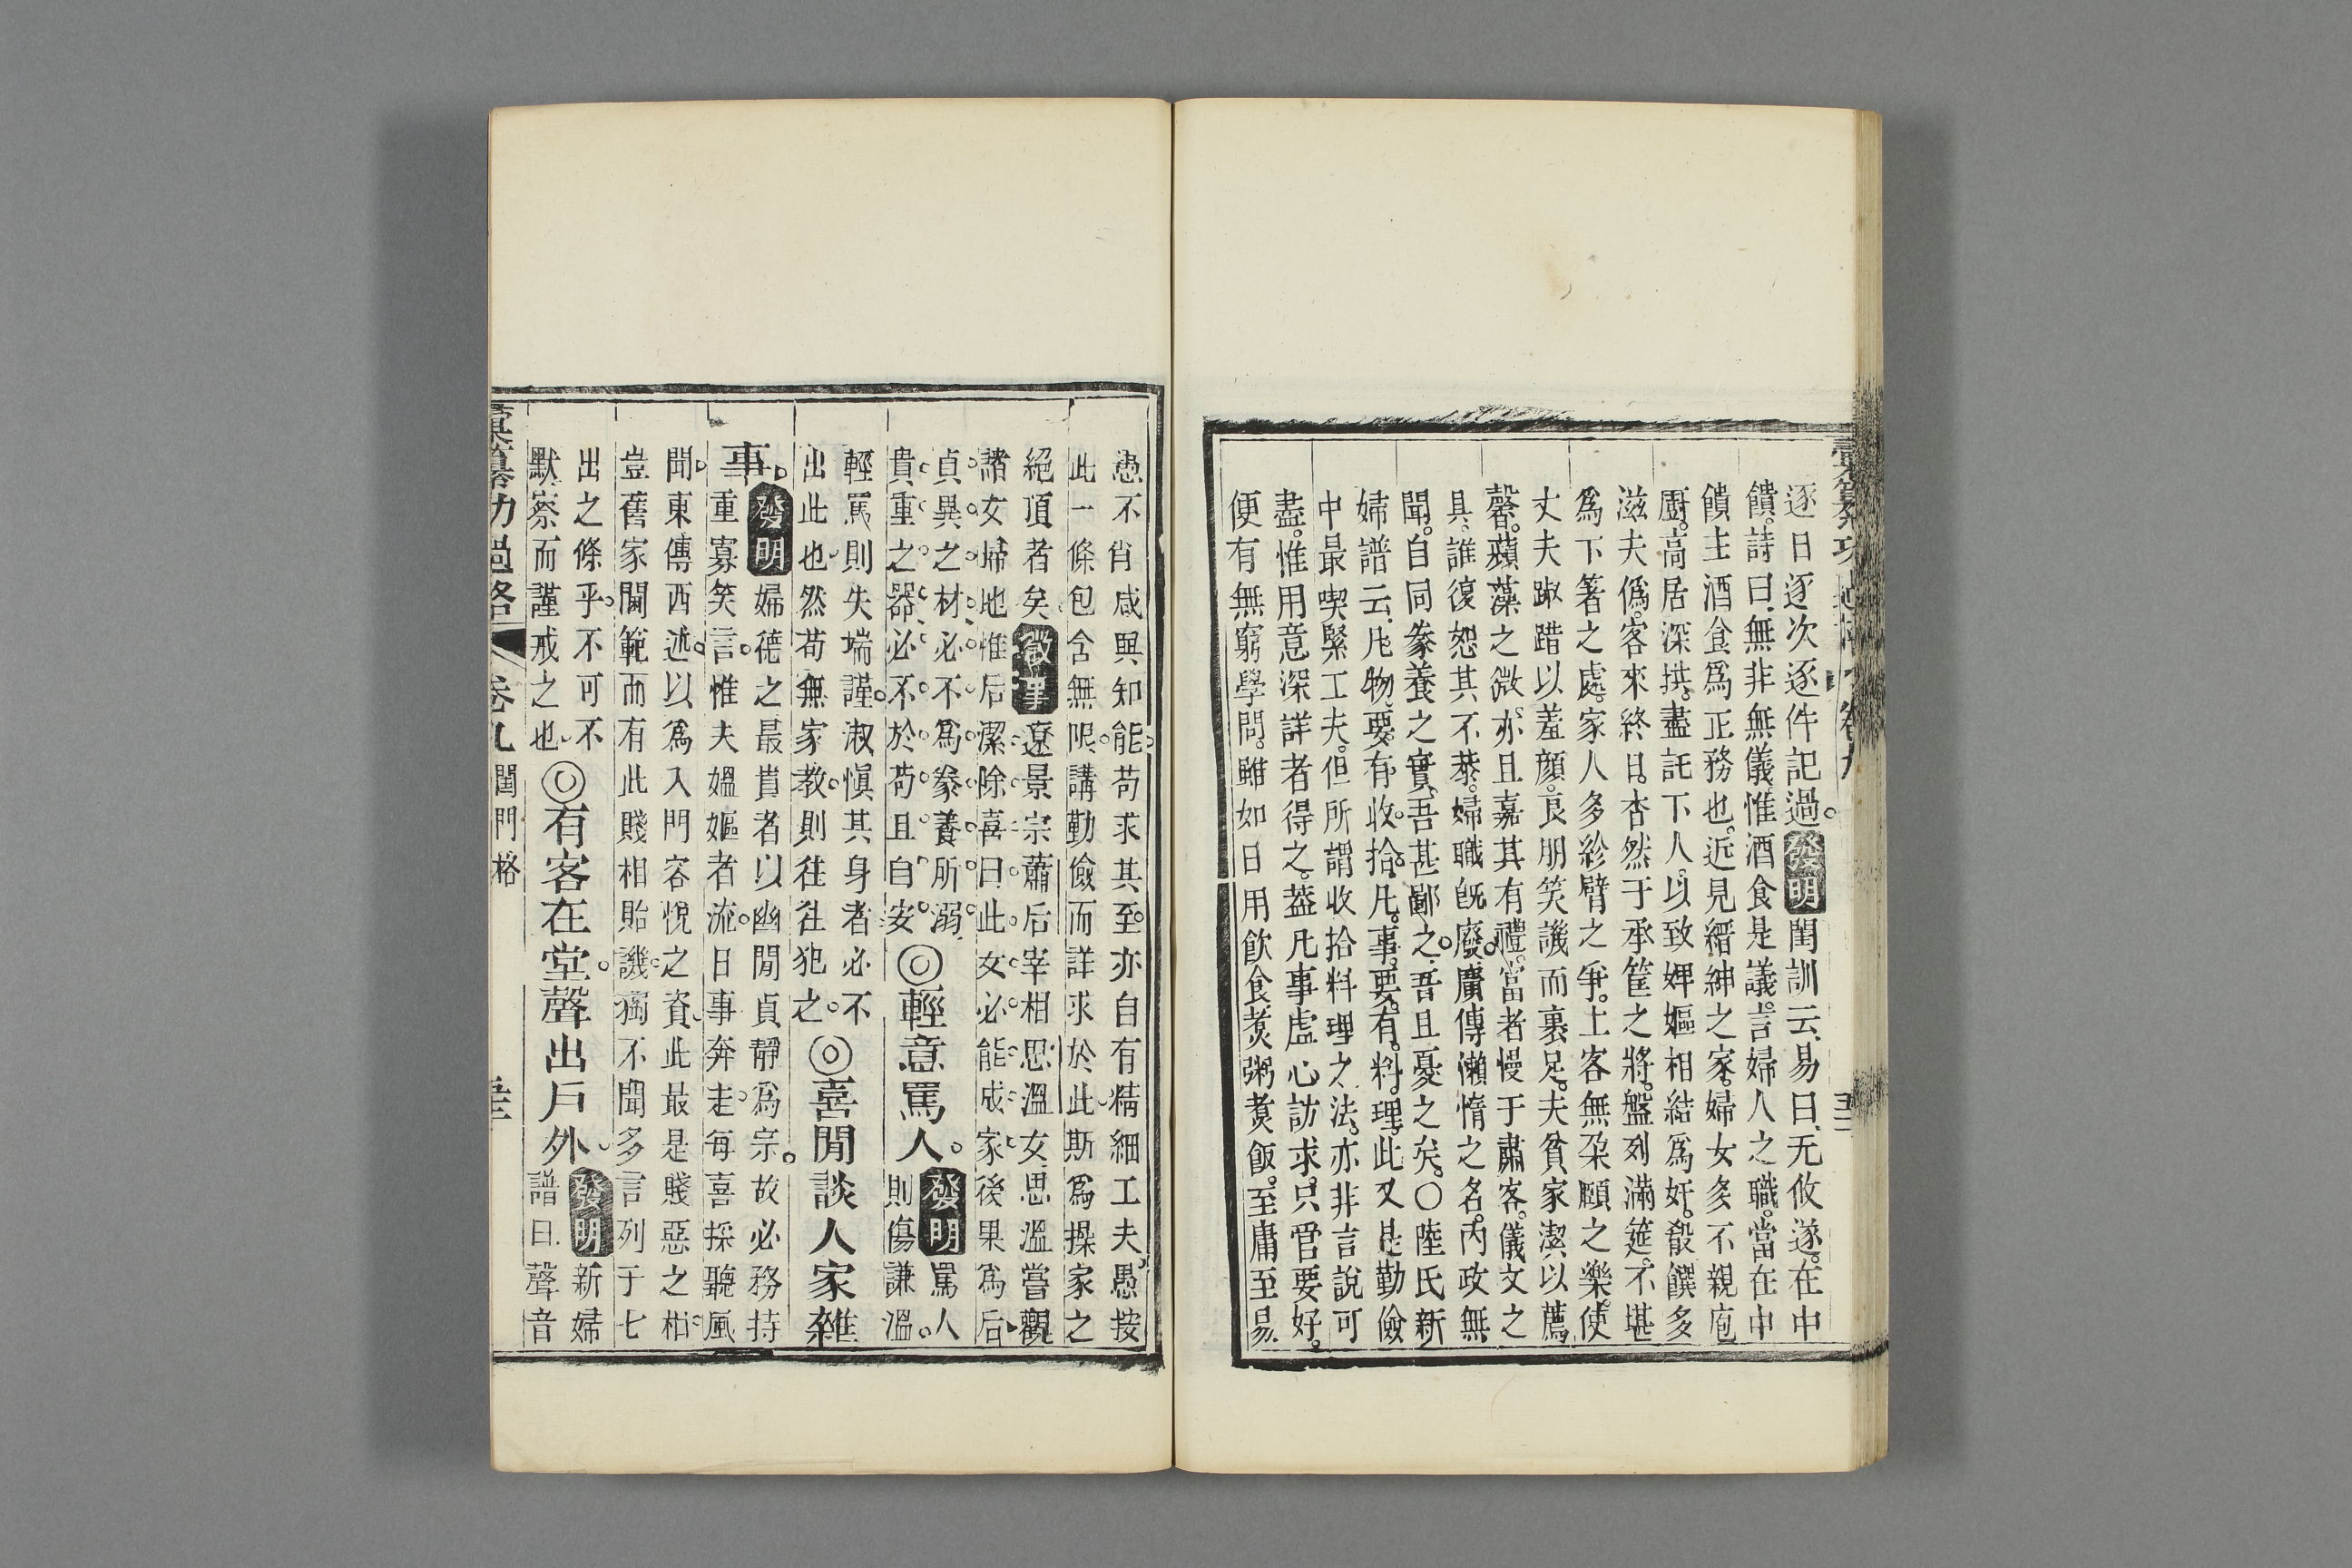 逐日逐次逐件記過。發明閨訓云、易曰、无攸遂。在中
饋。詩曰、無非無儀、惟酒食是議。言婦人之職。當在中
饋主酒食爲正務也。近見縉紳之家。婦女多不親庖
厨。高居深拱。盡託下人。以致婢嫗相結爲奸。殽饌多
滋夫僞。客來終日。杳然于承筐之將。盤列滿筵。不堪
爲下箸之處。家人多紾臂之爭。上客無朶頤之樂。使
丈夫踧踖以羞顔。良朋笑譏而裹足。夫貧家潔以薦
馨。蘋藻之微、亦且嘉其有禮。富者慢于肅客。儀文之
具。誰復恕其不恭。婦職既廢。廣傳懶惰之名。內政無
聞。自同豢養之實。吾甚鄙之。吾且憂之矣。〇陸氏新
婦譜云、凡物。要。有。收。拾。凡。事。要。有。料。理。此又是勤儉
中最喫緊工夫。但所謂收拾料理之法。亦非言說可
盡。惟用意深詳者得之。葢凡事虛心訪求。只管要好。
便有無窮學問。雖如日用飲食煑粥煑飯。至庸至易
愚不肖咸與知能。苟求其至。亦自有精細工夫。愚按
此一條包含無限。講勤儉而詳求於此。斯爲操家之
絕頂者矣。徵事遼景宗蕭后宰相思溫女思溫嘗觀
諸女婦地惟后潔除喜曰此女必能成家後果爲后
貞異之材必不爲豢養所溺
貴重之器必不於苟且自安◎輕意罵人。發明罵人
則傷謙溫。
輕罵則失端謹。淑愼其身者必不
出此也。然苟無家教。則往往犯之。◎喜閒談人家雜
事。發明婦德之最貴者以幽閒貞靜爲宗。故必務持
重寡笑言。惟夫媼嫗者流。日事奔走。每喜採聽風
聞。東傳西述。以爲入門容悅之資。此最是賤惡之相。
豈舊家閫範而有此賤相貽譏。獨不聞多言列于七
出之條乎。不可不
默察而謹戒之也。◎有客在堂。聲出戶外。發明新婦
譜曰。聲音
卷九
閨門格